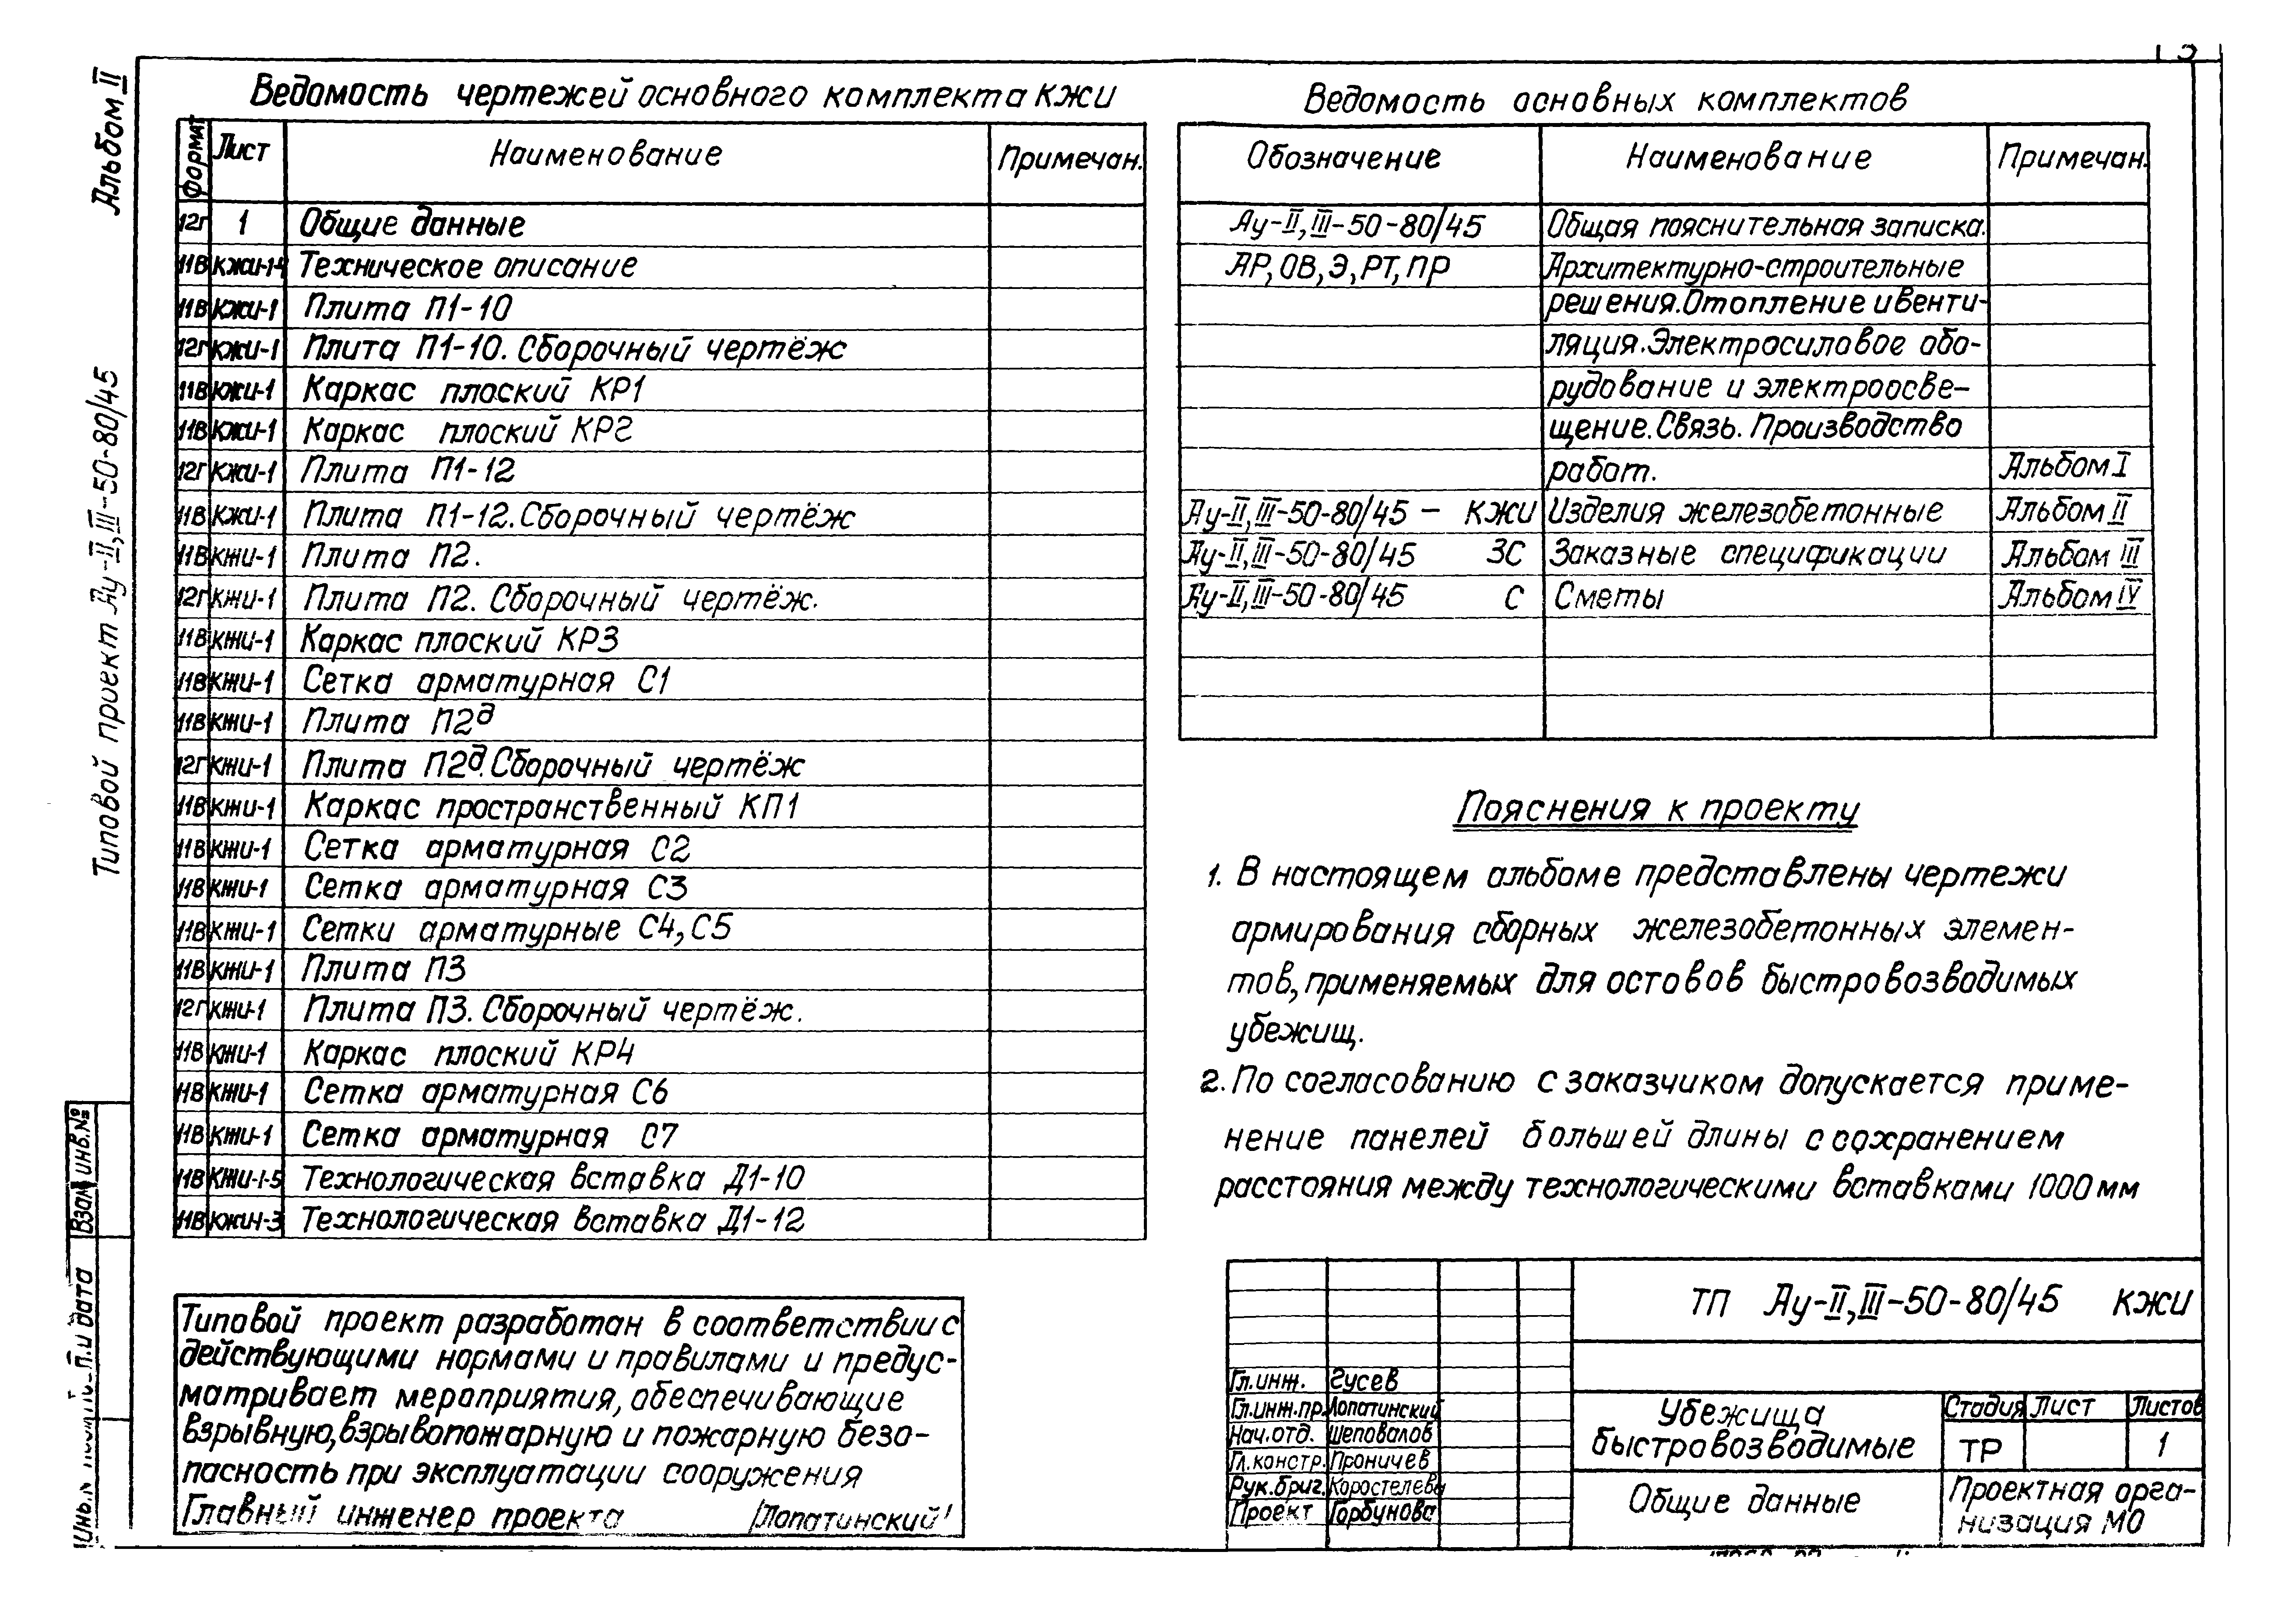 Альбом II
Типовой проект Ау-II,III-50-80/45
Взам инв.№
Ведомость чертежей основного комплекта КЖИ
формат Лист Наименование Примечан.
12г 1 Общие данные
11В КЖИ-1-4 Техническое описание
11В КЖИ-1 Плита П1-10
12г КЖИ-1 Плита П1-10. Сборочный чертёж
11В КЖИ-1 Каркас плоский КР1
11В КЖИ-1 Каркас плоский КР2
12г КЖИ-1 Плита П1-12
11В КЖИ-1 Плита П1-12. Сборочный чертёж
11В КЖИ-1 Плита П2.
12г КЖИ-1 Плита П2. Сборочный чертёж.
11В КЖИ-1 Каркас плоский КР3
11В КЖИ-1 Сетка арматурная С1
11В КЖИ-1 Плита П2д
12г КЖИ-1 Плита П2д. Сборочный чертёж
11В КЖИ-1 Каркас пространственный КП1
11В КЖИ-1 Сетка арматурная С2
11В КЖИ-1 Сетка арматурная С3
11В КЖИ-1 Сетки арматурные С4, С5
11В КЖИ-1 Плита П3
12г КЖИ-1 Плита П3. Сборочный чертёж.
11В КЖИ-1 Каркас плоский КР4
11В КЖИ-1 Сетка арматурная С6
11В КЖИ-1 Сетка арматурная С7
11В КЖИ-1-5 Технологическая вставка Д1-10
11В Технологическая вставка Д1-12
Типовой проект разработан в соответствии с
действующими нормами и правилами и предус-
матривает мероприятия, обеспечивающие
взрывную, взрывопожарную и пожарную безо-
пасность при эксплуатации сооружения
Главный инженер проекта /Лопатинский/
Ведомость основных комплектов
Обозначение Наименование Примечан.
Ау-II,III-50-80/45 Общая пояснительная записка.
АР, ОВ, Э, РТ, ПР Архитектурно-строительные
решения. Отопление и венти-
ляция. Электросиловое обо-
рудование и электроосве-
щение. Связь. Производство
работ. Альбом I
Ау-II,III-50-80/45 - КЖИ Изделия железобетонные Альбом II
Ау-II,III-50-80/45 ЗС Заказные спецификации Альбом III
Ау-II,III-50-80/45 С Сметы Альбом IV
Пояснения к проекту
1. В настоящем альбоме представлены чертежи
армирования сборных железобетонных элемен-
тов, применяемых для остовов быстровозводимых
убежищ.
2. По согласованию с заказчиком допускается приме-
нение панелей большей длины с сохранением
расстояния между технологическими вставками 1000 мм
ТП Ау-II,III-50-80/45 КЖИ
Гл.инж. Гусев
Гл.инж.пр. Лопатинский
Нач.отд. Шеповалов
Гл.констр. Проничев
Рук.бриг. Коростелева
Проект Горбунова
Убежища
быстровозводимые
Стадия Лист Листов
ТР 1
Общие данные
Проектная орга-
низация МО